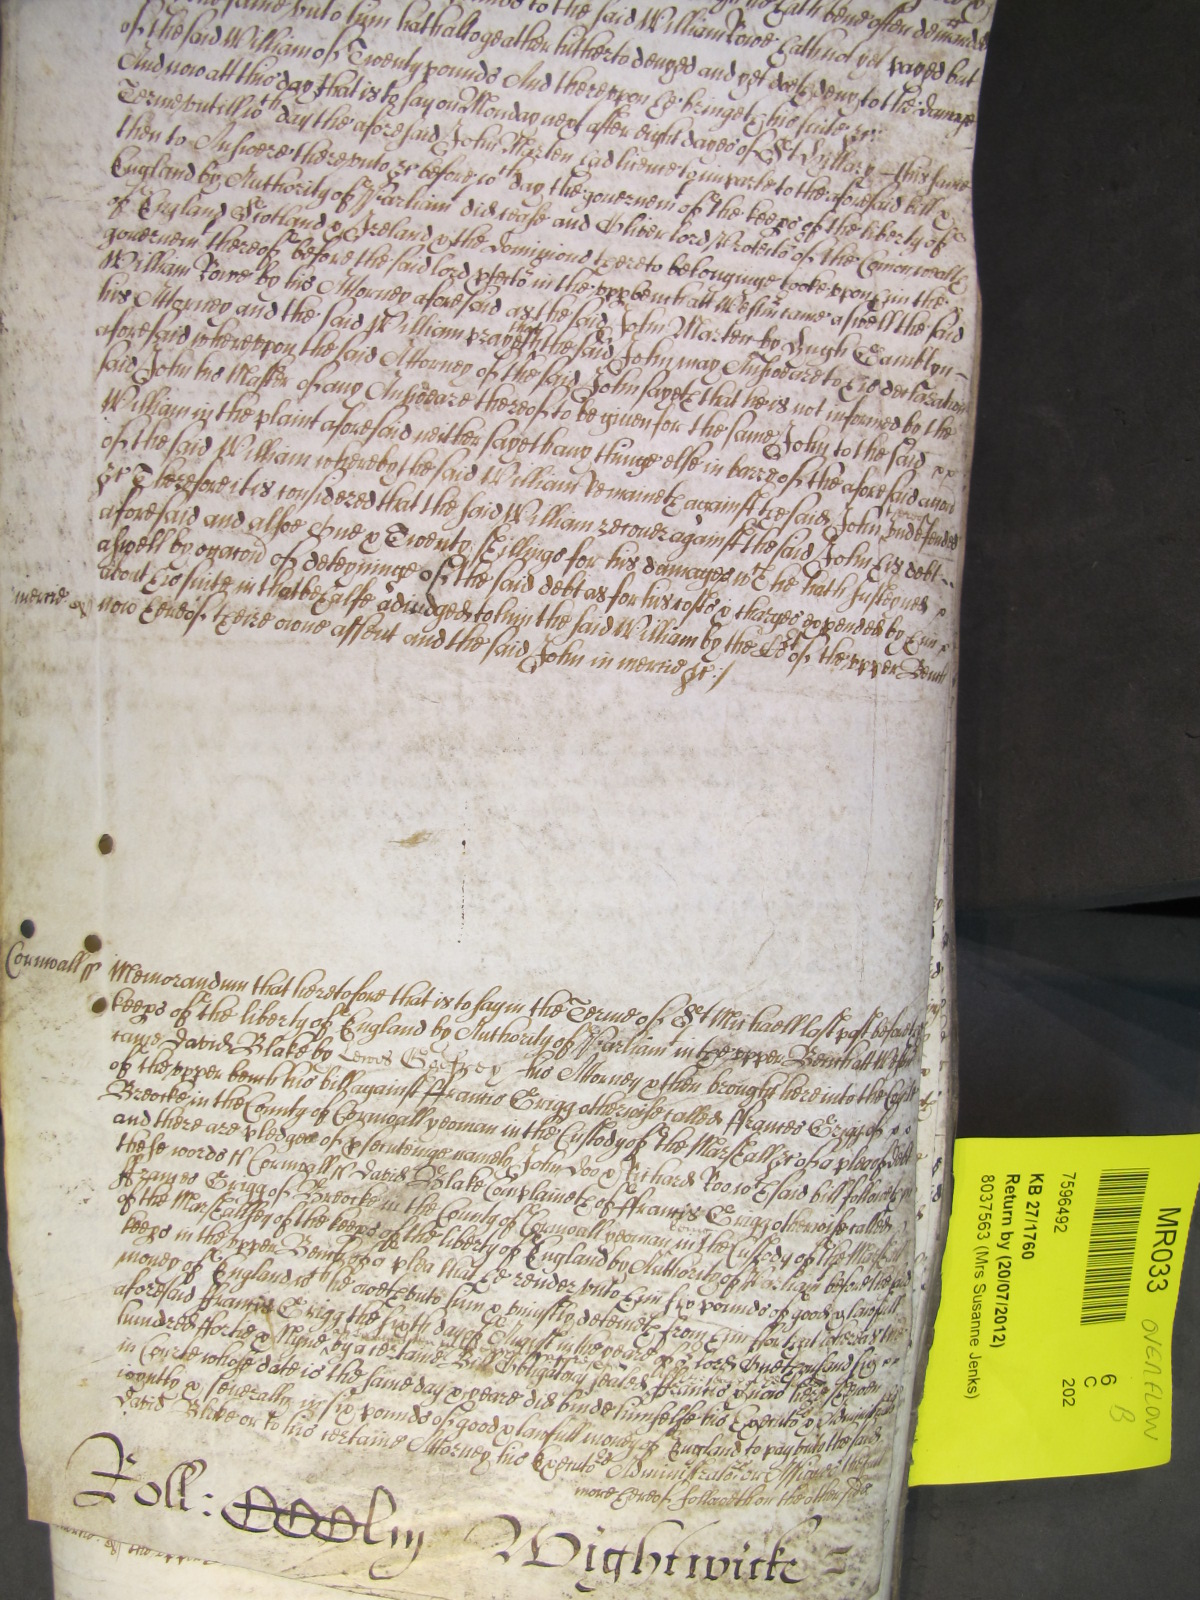 of the said William of Twenty pounds And thereupon he bringeth his suite &c:
And now att this day that is to say on Monday next after eight dayes of St Hyllary this same
Terme untill wch day the aforesaid John Marten had licence to imparle to the aforesaid bill &
then to Answere thereunto &c before wch day the governemt of the keeps of the liberty of
England by Authority of Parliamt did cease and Oliver lord Protector of the Comonwealth
of England Scotland & Ireland & the dominions thereto belonginge tooke uppon him the
governemt thereof before the said lord ptector in the upper bench att Westmr came aswell the said
William Rowe by his Attorney aforesaid as the said John Marten by Hugh
his Attorney and the said William prayeth that the said John may Answeare to his declaracon
aforesaid whereupon the said Attorney of the said John sayeth that he is not informed by the
said John his Master of any Answeare thereof to be given for the same John to the said
William in the plaint aforesaid neither sayeth any thinge else in barre of the aforesaid accon
of the said William whereby the said William Remaineth against the said John undefended
&c Therefore it is considered that the said William recover against the said John his debt
aforesaid and alsoe One & Twenty shillings for his damages wch he hath susteyned
aswell by occacon of deteyninge of the said debt as for his costs & charges expended by him
about his suite in that behalfe adiudged to him the said William by the Crt of the upper Bench
now hereof theire owne assent and the said John in mercie &c:/
mercie
Cornwall ss Memorandum that heretofore that is to say in the Terme of St Michaell last past before the
keeps of the liberty of England by Authority of Parliamt in the upper Bench att Westmr
came David Blake by Lewes his Attorney & then brought here into the Court
of the upper bench his bill against ffrancis Grigg otherwise called ffrances Grigg of
Breocke in the County of Cornwall yeoman in the Custody of the Marshall &c of a plea of debt
and there are pledges of psecutinge namely John Doo & Richard Roo wch said bill followeth in
these words ss Cornwall ss David Blake Complaineth of ffrancis Grigg otherwise called
ffrances Grigg of Breocke in the County of Cornwall yeoman in the Custody of the Marshall
of the Marshallsey of the keeps of the liberty of England by Authority of Parliamt before the said
keeps in the upper Bench of a plea that he render unto him six pounds of good & lawfull
money of England wch he oweth unto him & uniustly deteineth from him ffor that whereas the
aforesaid ffrancis Grigg the day of August in the yeare of or lord One Thousand six
hundred ffortie & Nyne by a certaine Bill Obligatory sealed
in Courte whose date is the same day & yeare did binde himselfe his Executors & Administrators
ioyntly & severally in six pounds of good & lawfull money of England to pay unto the said
David Blake or to his certaine Attorney his Executors Administrators or Assignes
more hereof followeth on the other side
Roll:
Wightwicke
MR033
OVERFLOW
B
6
C
202
7596492
KB 27/1760
Return by (20/07/2012)
8037563 (Mrs Susanne Jenks)